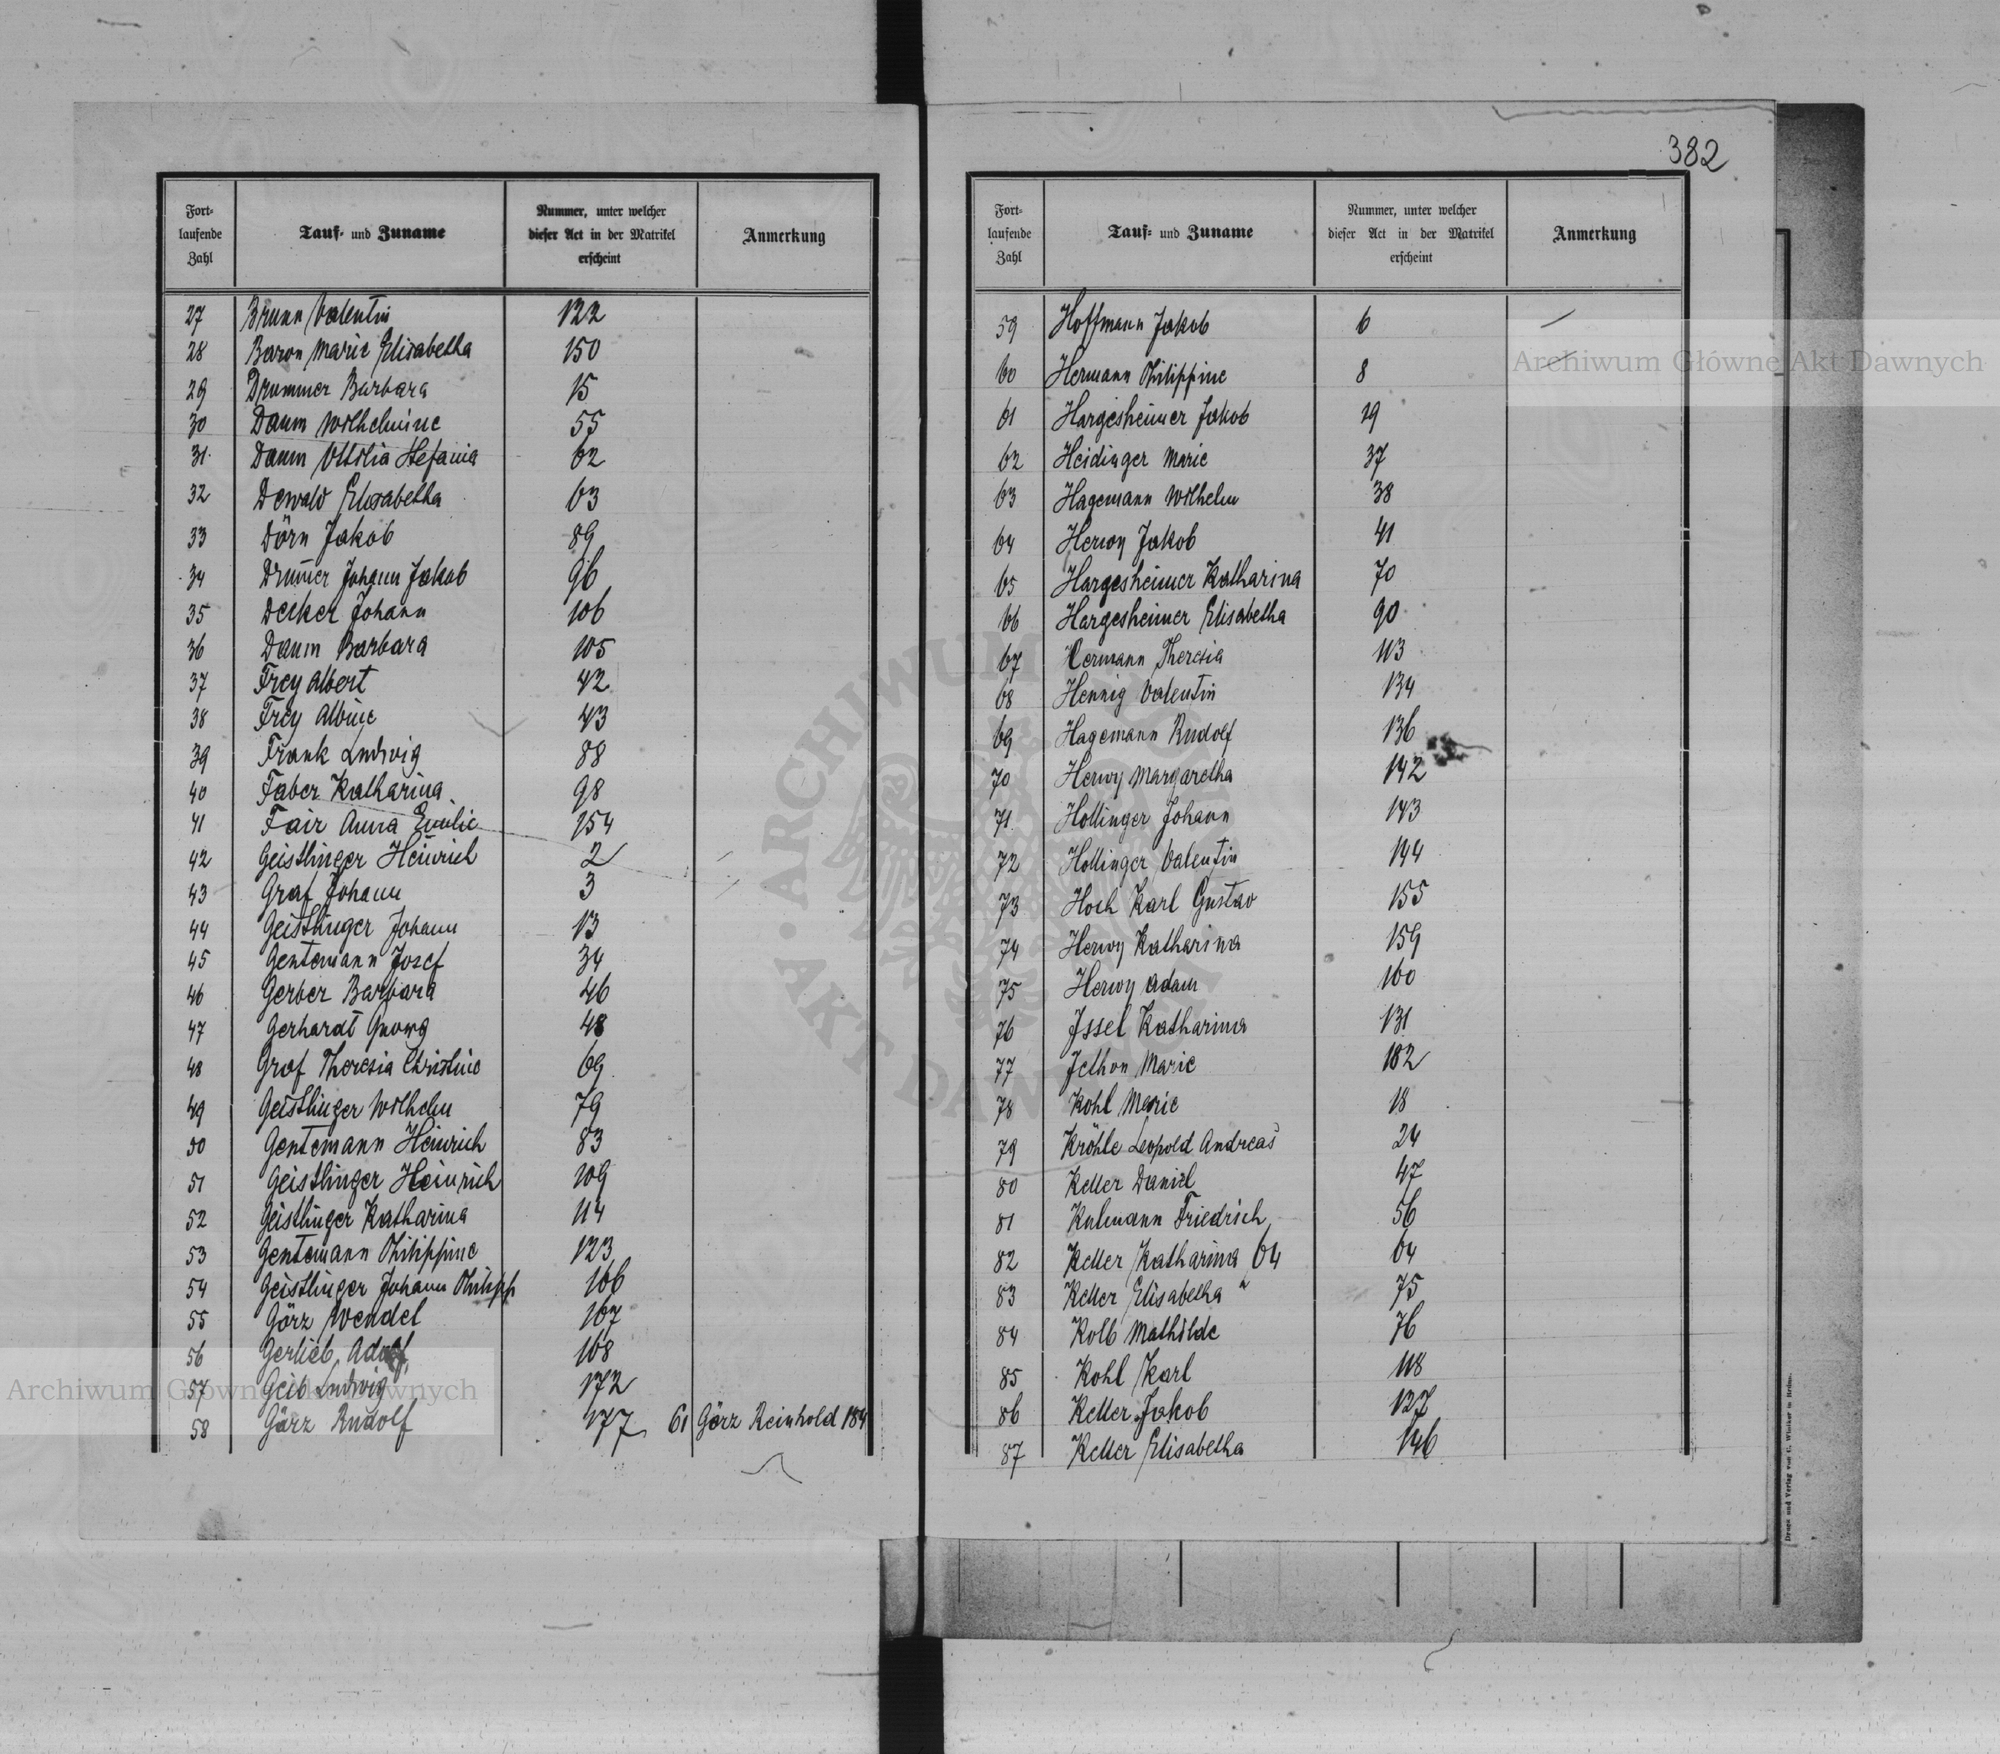 382
Fort- laufende Zahl Tauf- und Zuname Nummer, unter welcher dieser Act in der Matrikel erscheint Anmerkung
27 Brunn Valentin 122
28 Baron Marie Elisabetha 150
29 Drummer Barbara 15
30 Daum Wilhelmine 55
31 Daum Ottilia Stefania 62
32 Dewald Elisabetha 63
33 Dörn Jakob 89
34 Drumer Johann Jakob 96
35 Decker Johann 106
36 Daum Barbara 105
37 Frey Albert 42
38 Frey Albine 43
39 Frank Ludwig 88
40 Faber Katharina 98
41 Fair Anna Emilie 154
42 Geistlinger Heinrich 2
43 Graf Johann 3
44 Geistlinger Johann 13
45 Gentemann Josef 34
46 Gerber Barbara 46
47 Gerhardt Georg 48
48 Graf Theresia Christine 69
49 Geistlinger Wilhelm 79
50 Gentemann Heinrich 83
51 Geistlinger Heinrich 109
52 Geistlinger Katharina 114
53 Gentemann Philippine 123
54 Geistlinger Johann Philipp 166
55 Görz Wendel 167
56 Gerlieb Adolf 168
57 Geib Ludwig 172
58 Görz Rudolf 177 61 Görz Reinhold 184
Fort- laufende Zahl Tauf- und Zuname Nummer, unter welcher dieser Act in der Matrikel erscheint Anmerkung
59 Hoffmann Jakob 6
60 Hermann Philippine 8
61 Hargesheimer Jakob 29
62 Heidinger Marie 37
63 Hagemann Wilhelm 38
64 Herwy Jakob 41
65 Hargesheimer Katharina 70
66 Hargesheimer Elisabetha 90
67 Hermann Theresia 113
68 Hennig Valentin 134
69 Hagemann Rudolf 136
70 Herwy Margaretha 142
71 Hollinger Johann 143
72 Hollinger Valentin 144
73 Hoch Karl Gustav 155
74 Herwy Katharina 159
75 Herwy Adam 160
76 Issel Katharina 131
77 Jethon Marie 182
78 Kohl Marie 18
79 Kröhle Leopold Andreas 24
80 Keller Daniel 47
81 Kulmann Friedrich 56
82 Keller Katharina 64 64
83 Keller Elisabetha " 75
84 Kolb Mathilde 76
85 Kohl Karl 118
86 Keller Jakob 127
87 Keller Elisabetha 146
Druck und Verlag von C. Winiker in Brünn.
Archiwum Główne Akt Dawnych
Archiwum Główne Akt Dawnych